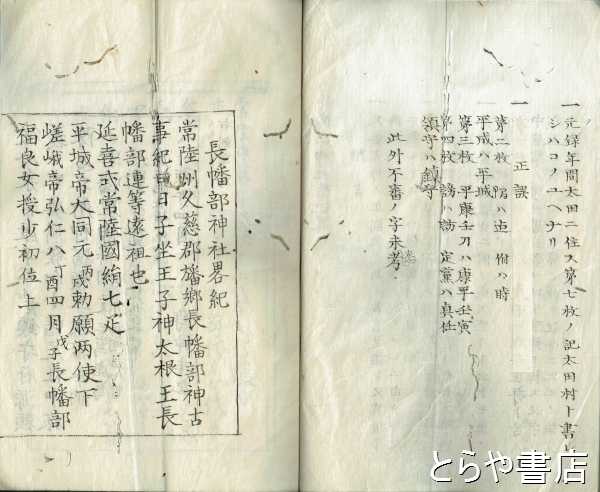 一元録年間太田ニ住ス第七枚ノ記太田村ト書
シハコノユヘナリ
一 正誤
第二枚 ハ 迠 付ハ時
平成ハ平城
第三枚 平康壬刀ハ康平壬寅
第四枚 謗ハ訪 定黨ハ貞任
領守ハ鎮守
此外不審ノ字未考
長幡部神社畧紀
常陸州久慈郡旛郷長幡部神古
事紀曰日子坐王子神太根王長
幡部連等遠祖也
延喜式常陸國絹七疋
平城帝大同元丙戌勅願两使下
嵯峨帝弘仁八丁酉四月戊子長幡部
福良女授少初位上
とらや書店